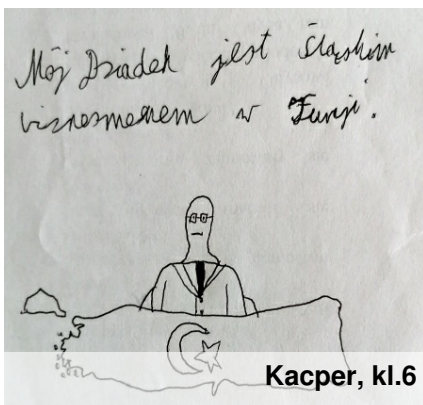 Mój Dziadek jest Śląskim
biznesmenem w Turcji.
Kacper, kl.6